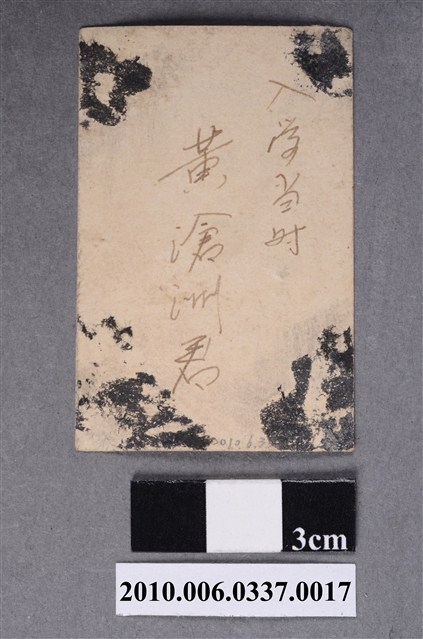 入学当时
黄滄洲君
3cm
2010.006.0337.0017